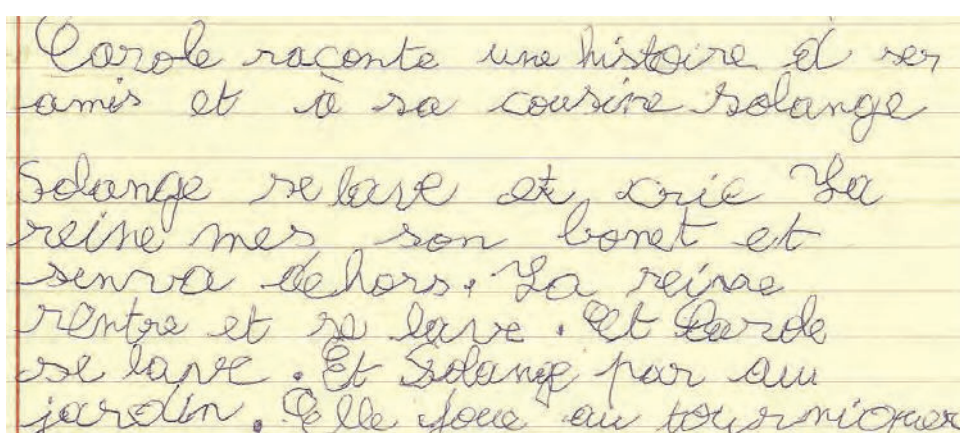 Carole raconte une histoire à ses
amis et à sa cousine solange
Solange se lave et crie La
reine mes son bonet et
senva dehors. La reine
rentre et se lave. Et Carole
se lave. Et Solange par au
jardin. Elle joue au tourniquer